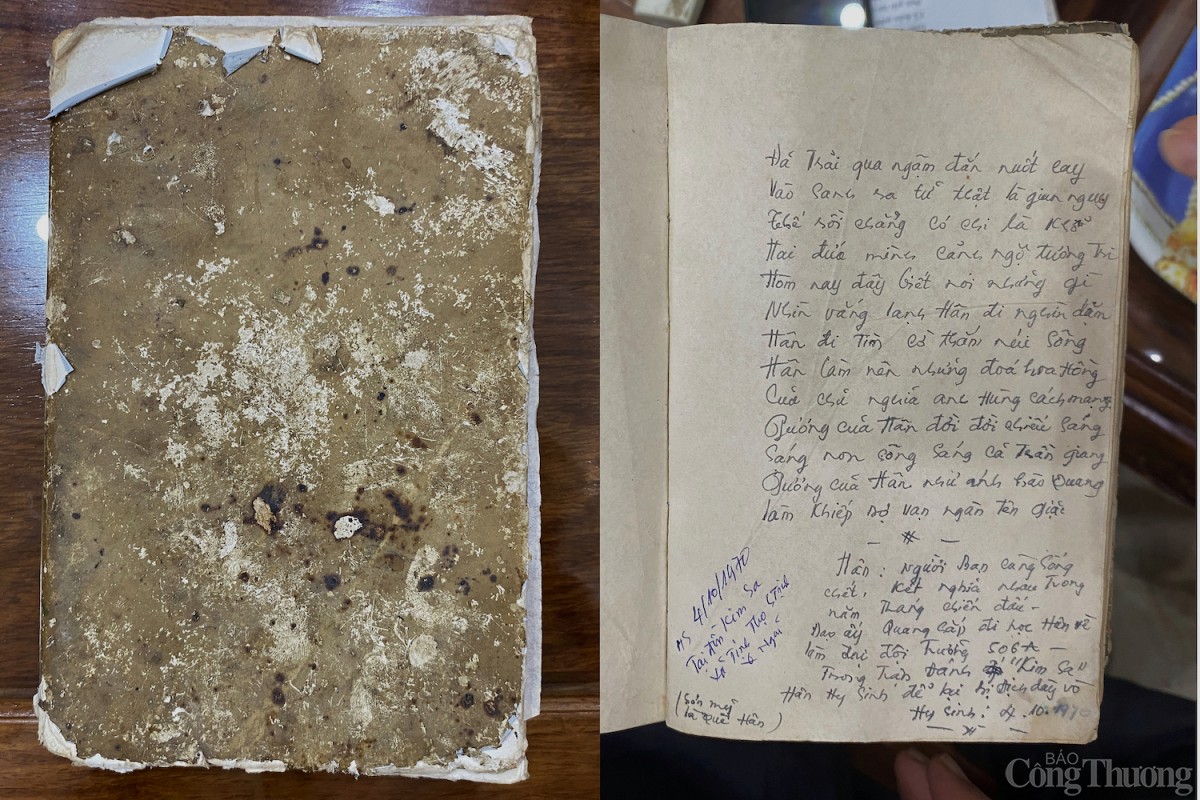 Đã Trải qua ngậm đắn nuốt cay
Vào sanh ra tử thật là gian nguy
Thế rồi chẳng có chi là Khổ
Hai đứa mình cảnh ngộ tương tri
Hôm nay đây biết nói những gì
Nhìn vắng lạnh Hân đi nghìn dặm
Hân đi tìm cỏ thắm núi Sông
Hân làm nên những đoá hoa Hồng
Của chủ nghĩa anh Hùng cách mạng
Gương của Hân đời đời chiếu Sáng
Sáng non sông Sáng cả Trần gian
Gương của Hân như ánh hào Quang
làm Khiếp nợ vạn ngàn tên giặc
Hân: Người Bạn cùng Sống
chết, Kết nghĩa nhau Trong
năm Tháng chiến đấu -
Đạo ấy Quang cấp đi học Hân về
làm đại đội Trưởng 506A -
Trong Trận Đánh "Kim Sa"
Hân Hy Sinh để lại
Hy Sinh: 4.10.1970
HS 4/10/1970
Tại Kim Sa
Xã Tịnh Thọ S Tịnh
Q Ngãi
(Sơn mỹ
là Quê Hân)
BÁO
Công Thương